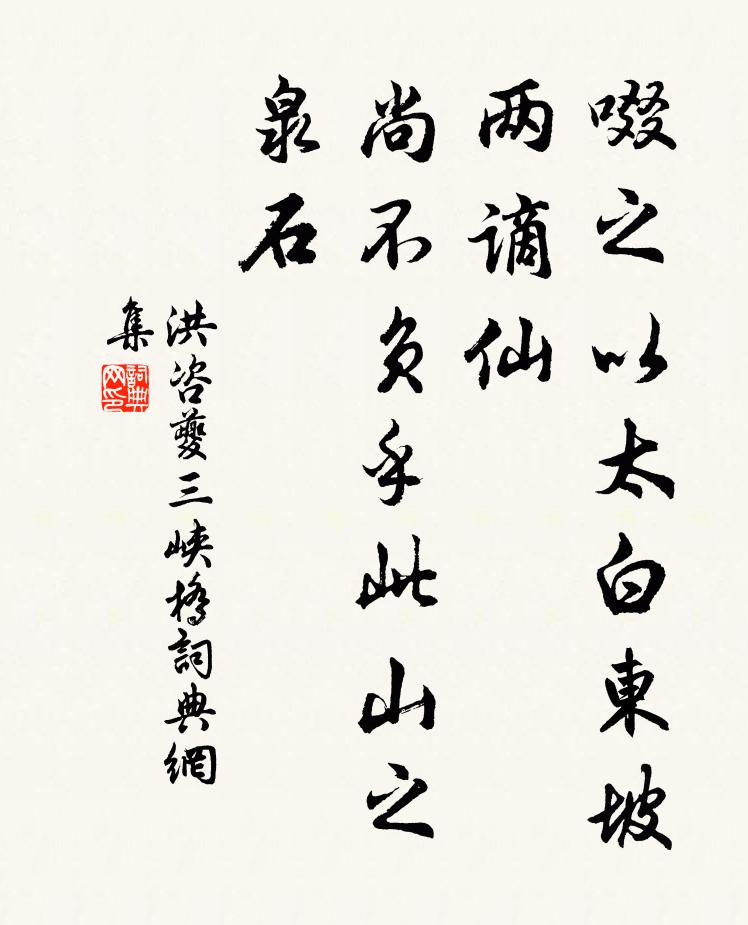 啜之以太白東坡
两謫仙
尚不负乎此山之
泉石
洪咨夔三峡橋詞典網
集
詞典
网印